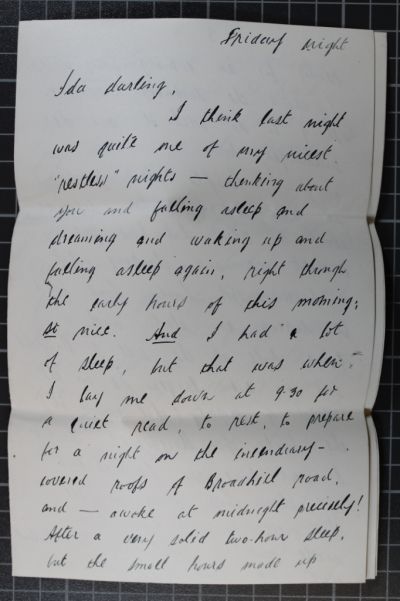 Friday night
Ida darling,
I think last night
was quite one of my nicest
"restless" nights — thinking about
you and falling asleep and
dreaming and waking up and
falling asleep again, right through
the early hours of this morning;
so nice. And I had a lot
of sleep, but that was when
I lay me down at 9.30 for
a quiet read, to rest, to prepare
for a night on the incendiary-
covered roofs of Broadhill road,
and — awoke at midnight precisely!
After a very solid two-hour sleep,
but the small hours made up